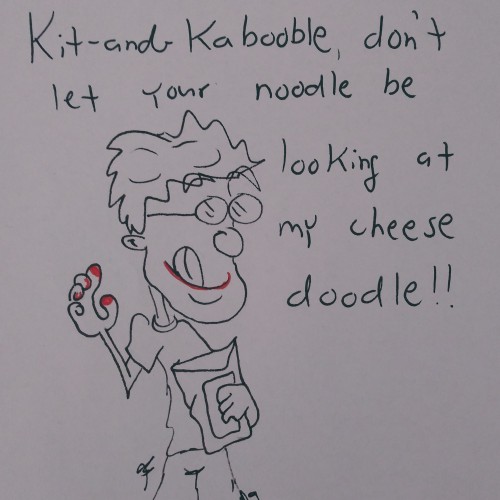 Kit-and-Kabooble, don't
let your noodle be
looking at
my cheese
doodle!!